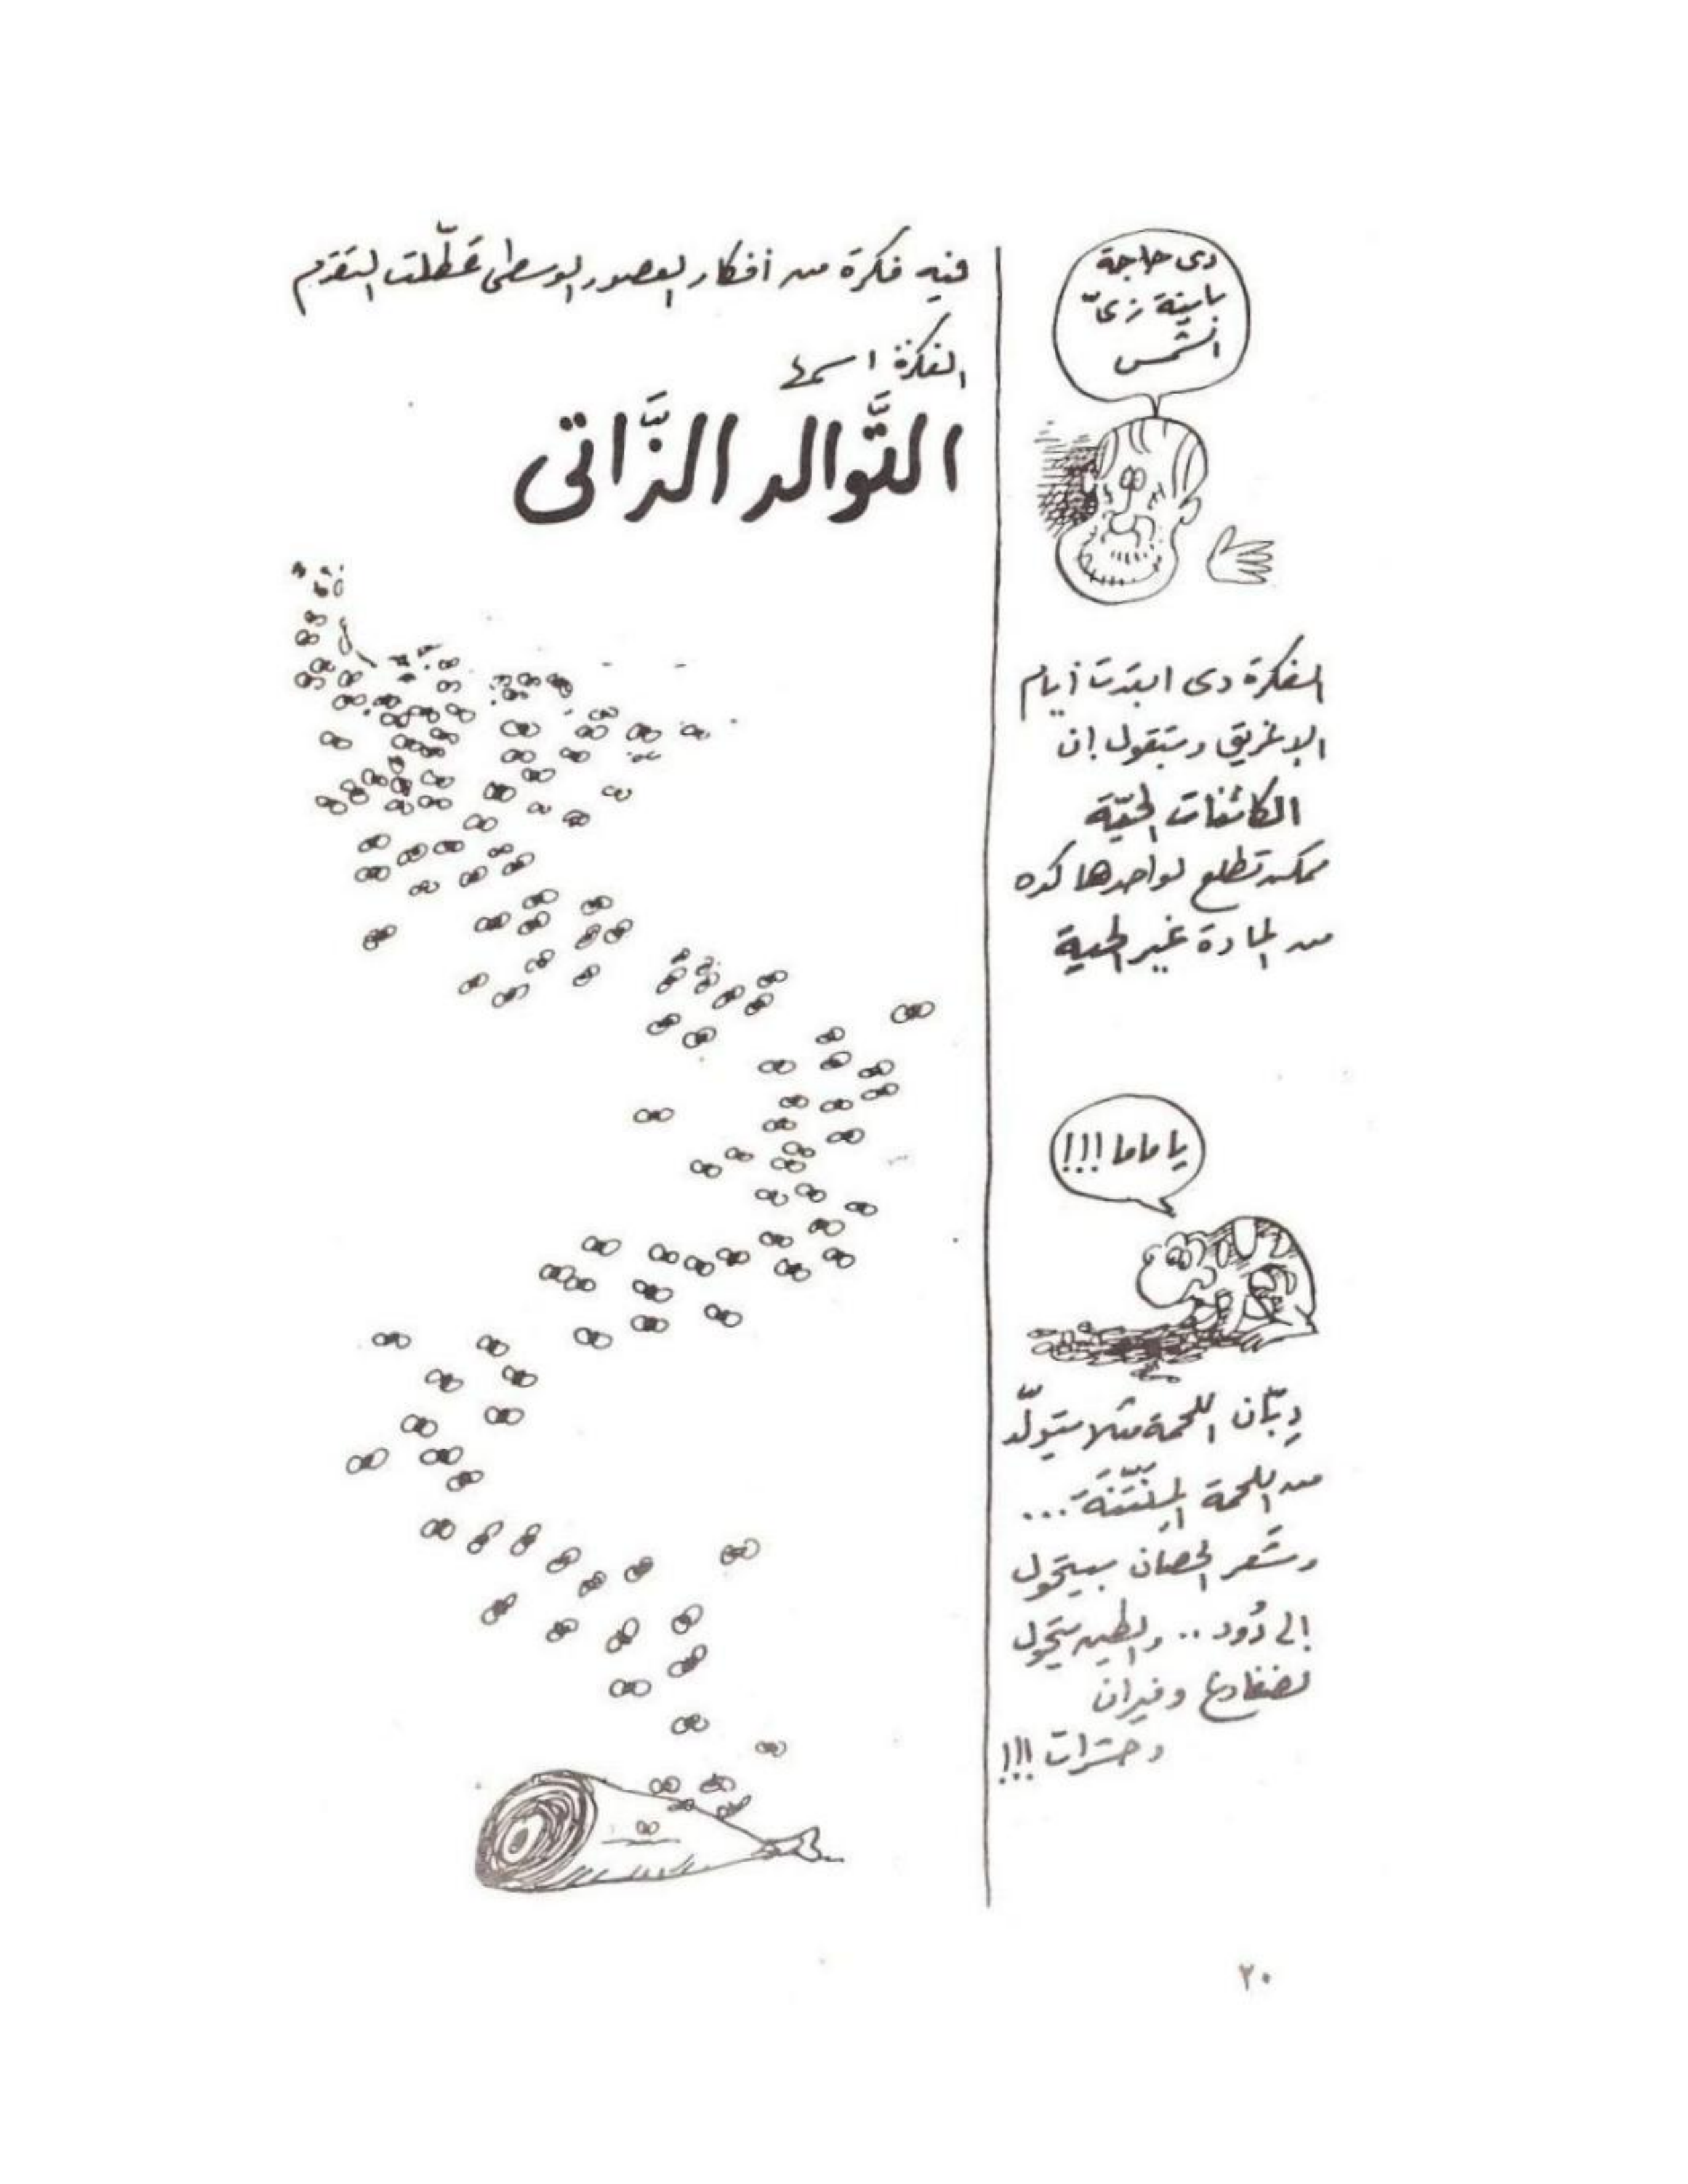 فيه فكرة من أفكار العصور الوسطى عَطّلت التقدّم
الفكرة اسمها
التَّوالد الذَّاتى
دى حاجة
باينة زىّ
الشمس
الفكرة دى ابتدت أيام
الإغريق وبتقول إن
الكائنات الحيّة
ممكن تطلع لواحدها كده
من المادة غير الحية
يا ماما !!!
دِبّان اللحمة مثلا بيتولّد
من اللحمة المِنَتّنَة ...
وشَعر الحصان بيتحول
إلى دُود .. والطين بيتحول
لضفادع وفيران
وحشرات !!!
٢٠